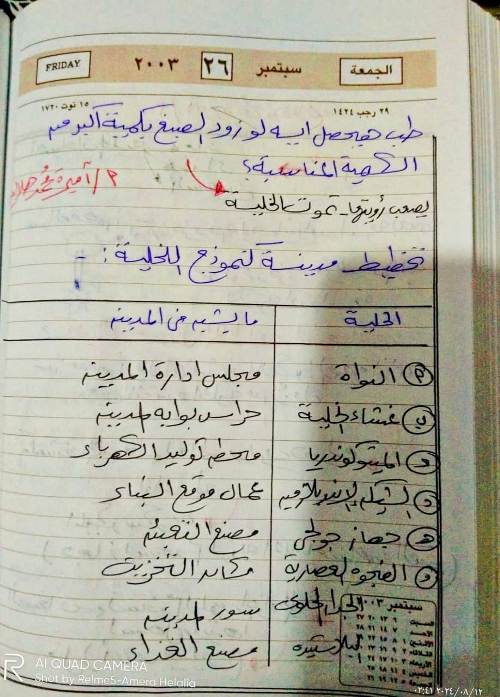 الجمعة ٢٦ سبتمبر ٢٠٠٣ FRIDAY
٢٩ رجب ١٤٢٤ ١٥ توت ١٧٢٠
طب هيحصل ايه لو زود الصبغ بكمية أكبر من
الكمية المناسبة؟
م/أميرة محمد
يصعب رؤيتها - موت الخلية
تخطيط مدينة كنموذج للخلية :-
الخلية ما يشبه فى المدينه
أ النواة مجلس ادارة المدينه
ب غشاء الخلية حراس بوابه المدينه
ج الميتوكوندريا محطه توليد الكهرباء
د الشبكه الإندوبلازميه عمال موقع البناء
ه جهاز جولجى مصنع التعبئه
و الفجوه العصارية مكان التخزين
الجدار الخلوى سور المدينه
البلاستيده مصنع الغذاء
سبتمبر ٢٠٠٣
AI QUAD CAMERA
Shot by Relme5-Amera Helalia